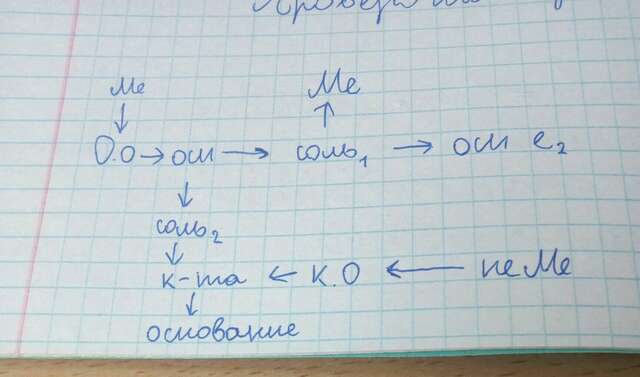 Ме Ме
О.о → осн → соль₁ → осн е₂
соль₂
к-та ← К.О ← неМе
основание